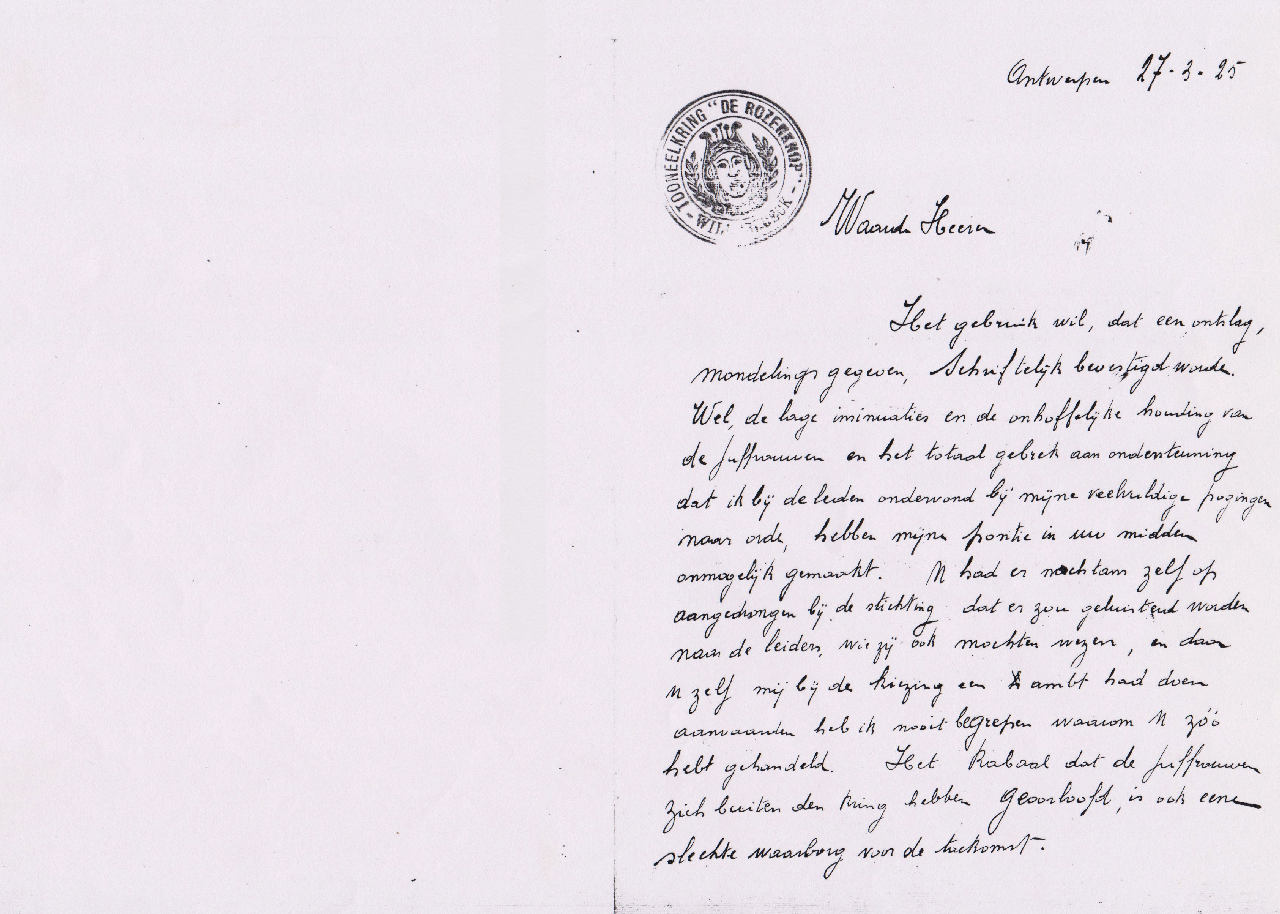 Antwerpen 27-3-25
TOONEELKRING "DE ROZENKNOP"
Waarde Heeren
Het gebruik wil, dat een ontslag,
mondelings gegeven, schriftelijk bevestigd worde.
Wel, de lage insinuaties en de onhoffelijke houding van
de juffrouwen en het totaal gebrek aan ondersteuning
dat ik bij de leiden ondervond bij mijne veelvuldige pogingen
naar orde, hebben mijne positie in uw midden
onmogelijk gemaakt. U had er nochtans zelf op
aangedrongen bij de stichting dat er zou geluisterd worden
naar de leiders, wie zij ook mochten wezen, en daar
U zelf mij bij de kiezing een ambt had doen
aanvaarden heb ik nooit begrepen waarom U zóó
hebt gehandeld. Het Kabaal dat de juffrouwen
zich buiten den kring hebben geoorloofd, is ook eene
slechte waarborg voor de toekomst.